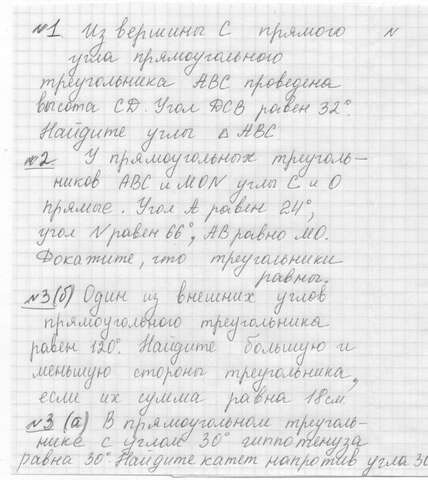 №1 Из вершины С прямого N
угла прямоугольного
треугольника АВС проведена
высота CD. Угол DCB равен 32°.
Найдите углы △ АВС
№2 У прямоугольных треуголь-
ников АВС и MON углы С и О
прямые. Угол А равен 24°,
угол N равен 66°, АВ равно МО.
Докажите, что треугольники
равны.
№3 (б) Один из внешних углов
прямоугольного треугольника
равен 120°. Найдите большую и
меньшую стороны треугольника,
если их сумма равна 18см
№3 (а) В прямоугольном треуголь-
нике с углом 30° гиппотенуза
равна 30° Найдите катет напротив угла 30